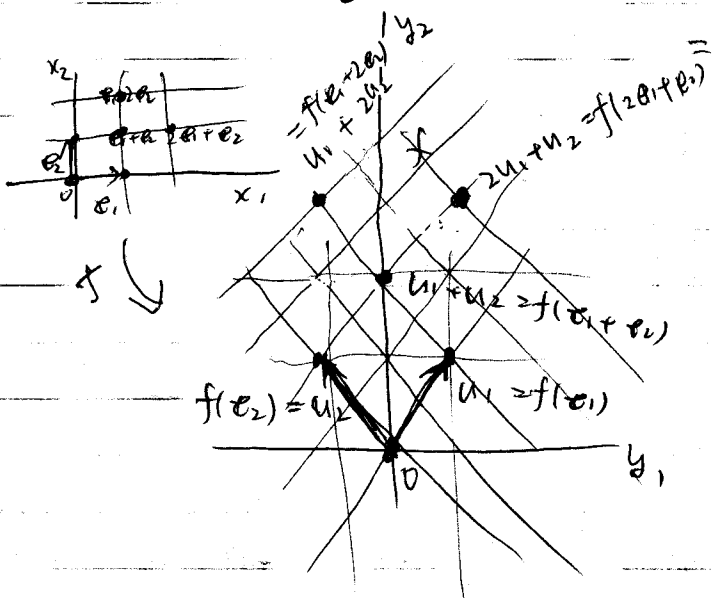 x₂
e₁+2e₂
e₁+e₂
2e₁+e₂
e₂
0
e₁
x₁
f
y₂
= f(e₁+2e₂)
u₁ + 2u₂
2u₁+u₂ = f(2e₁+e₂)
u₁+u₂ = f(e₁+e₂)
f(e₂) = u₂
u₁ = f(e₁)
0
y₁